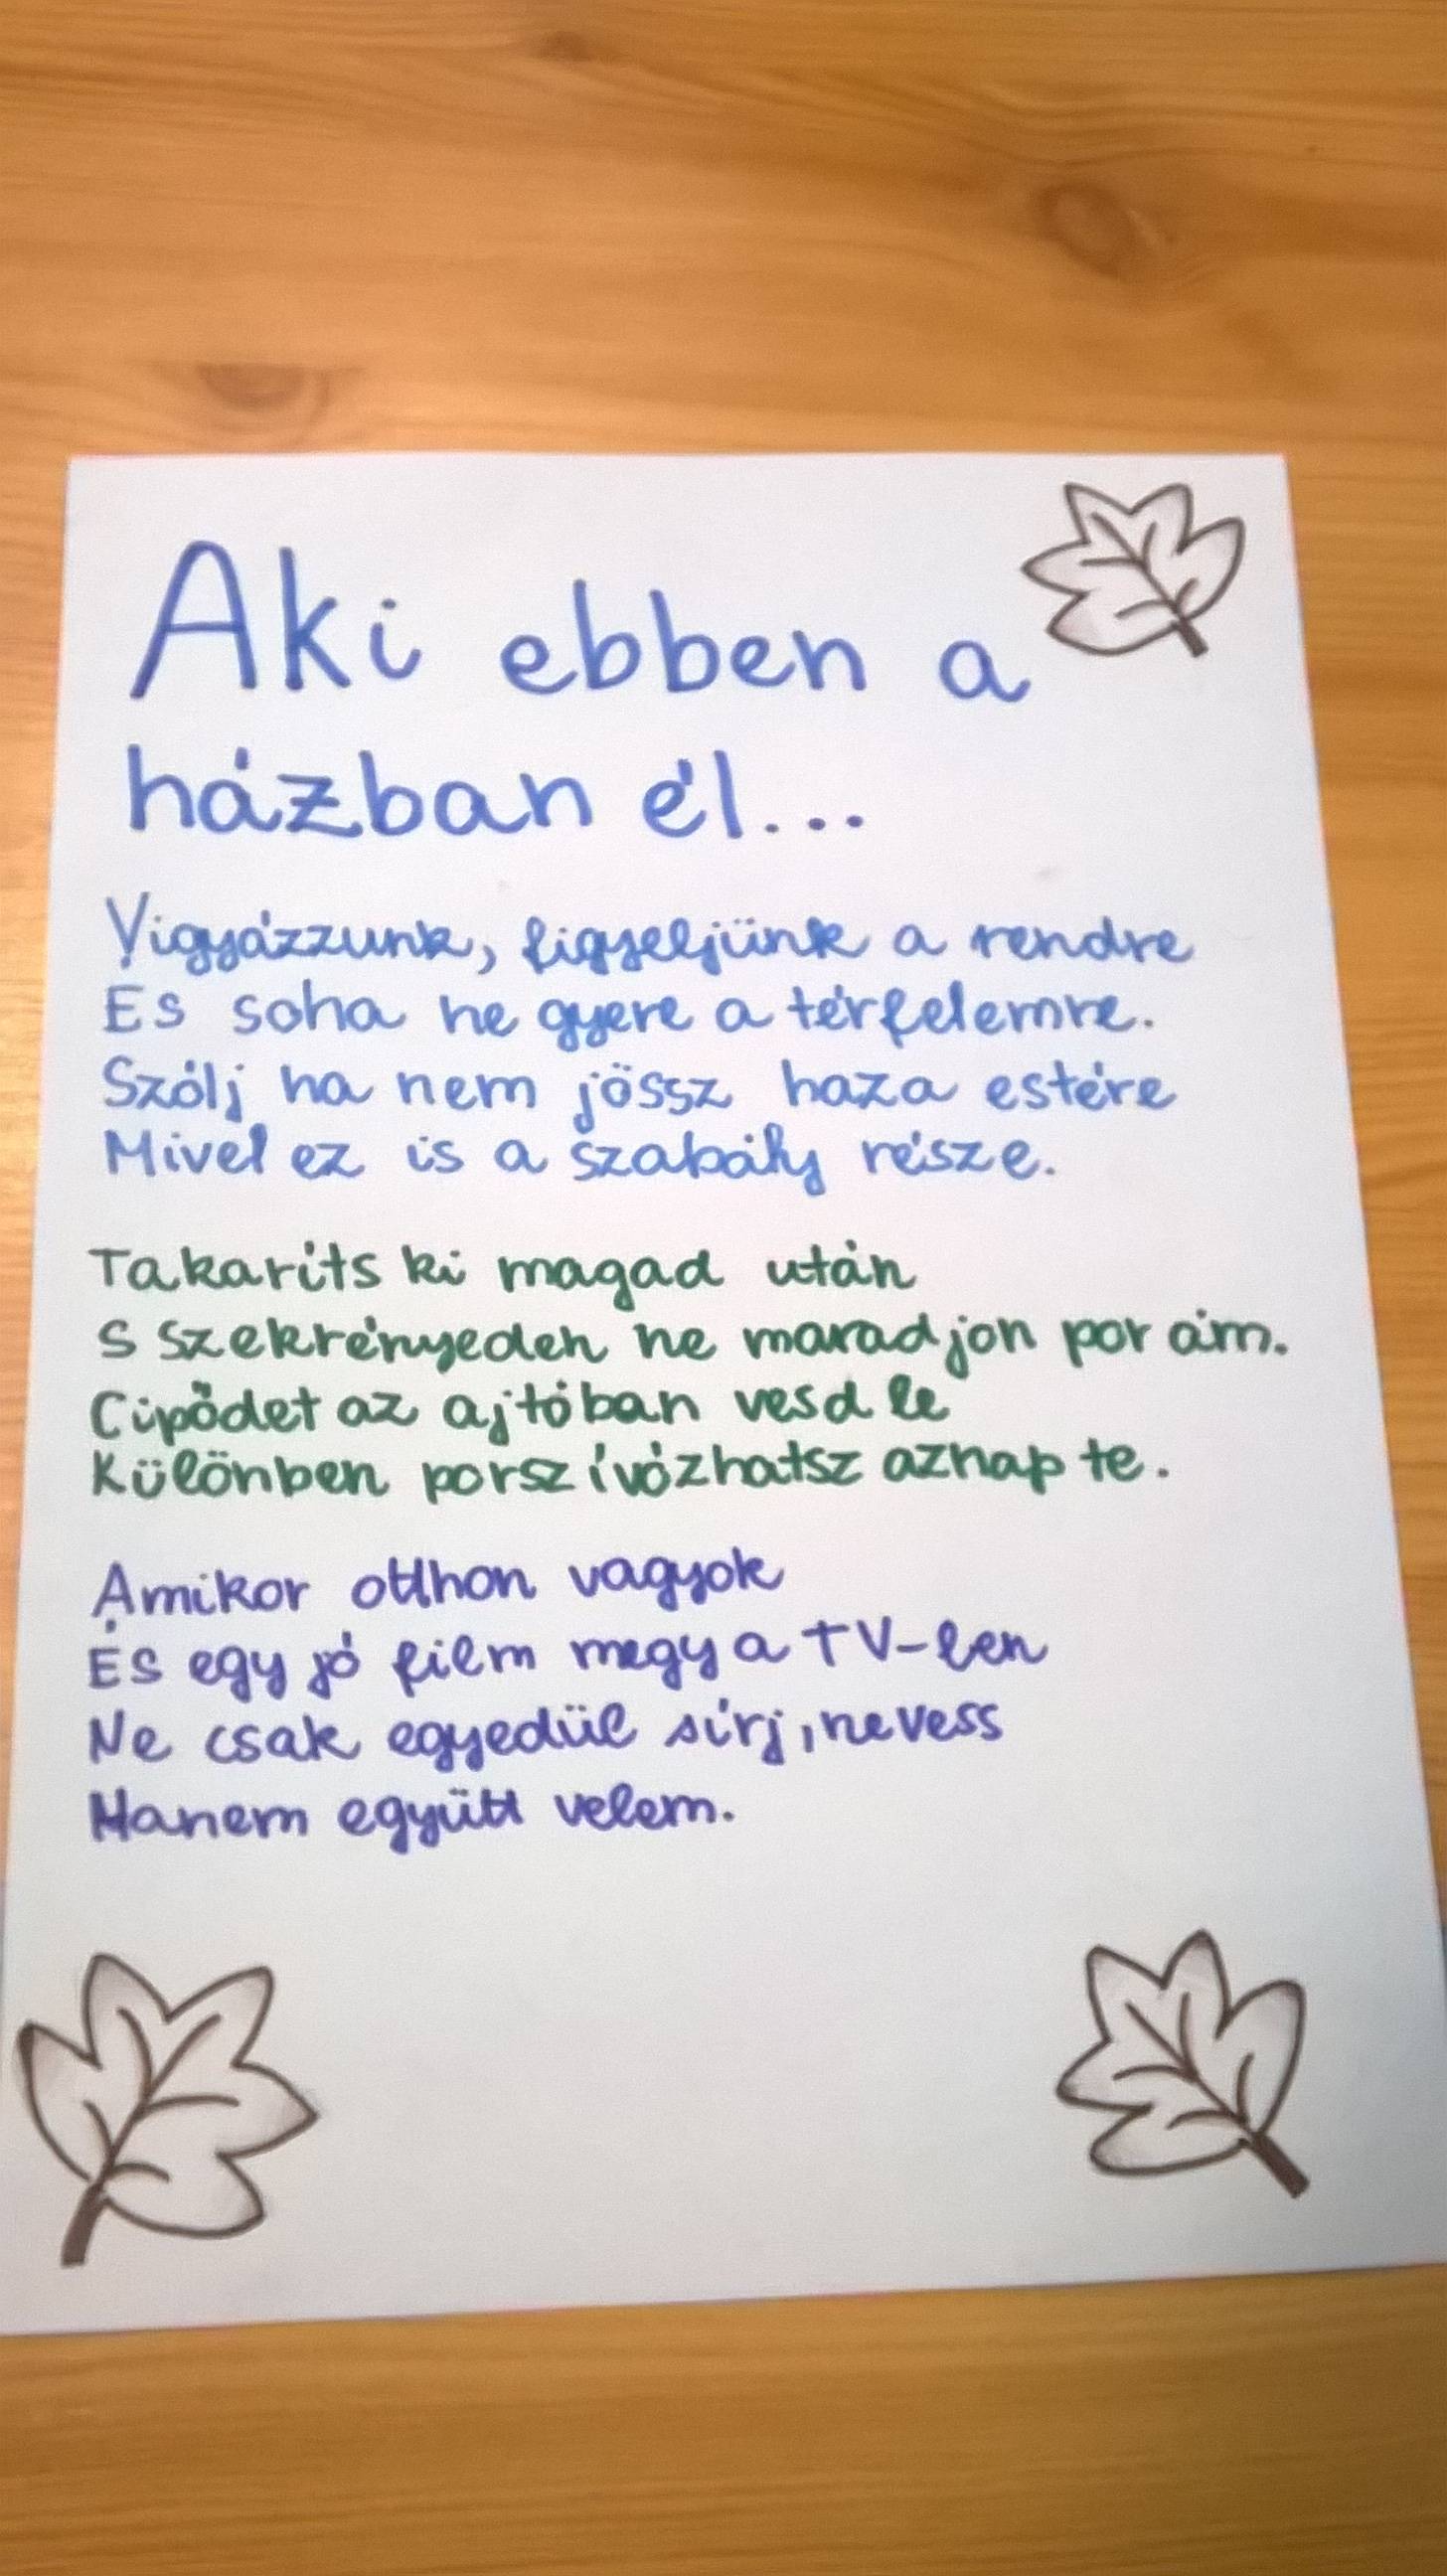 Aki ebben a
házban él...
Vigyázzunk, figyeljünk a rendre
És soha ne gyere a térfelemre.
Szólj ha nem jössz haza estére
Mivel ez is a szabály része.
Takaríts ki magad után
S szekrényeden ne maradjon por ám.
Cipődet az ajtóban vesd le
Különben porszívózhatsz aznap te.
Amikor otthon vagyok
És egy jó film megy a TV-ben
Ne csak egyedül sírj, nevess
Hanem együtt velem.